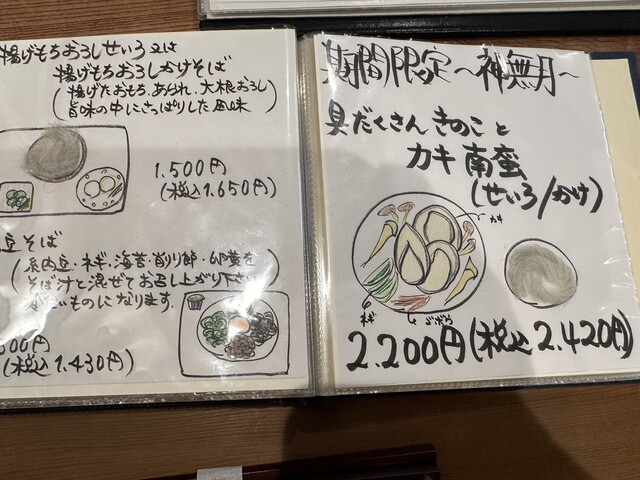 揚げもちおろしせいろ又は
揚げもちおろしかけそば
(揚げたおもち、あられ、大根おろし
旨味の中にさっぱりした風味)
1.500円
(税込1.650円)
豆そば
(納豆・ネギ・海苔・削り節・卵黄を
そば汁と混ぜてお召し上がり下さい
ものになります。
300円
(税込1.430円)
期間限定〜神無月〜
具だくさんきのこと
カキ南蛮
(せいろ/かけ)
カキ
ネギ
ごぼう
2.200円(税込2.420円)